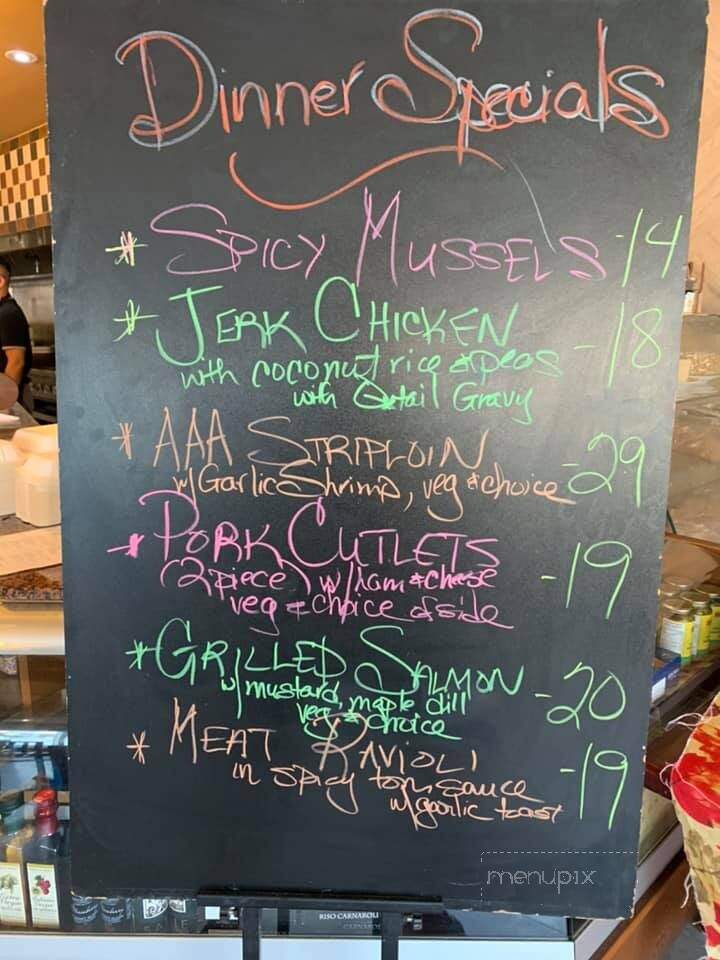 Dinner Specials
* SPICY MUSSELS -14
* JERK CHICKEN -18
with coconut rice & peas
with Oxtail Gravy
* AAA STRIPLOIN -29
w/ Garlic Shrimp, veg & choice
* PORK CUTLETS -19
(2 piece) w/ ham & cheese
veg & choice of side
* GRILLED SALMON -20
w/ mustard, maple dill
veg & choice
* MEAT RAVIOLI -19
in spicy tom sauce
w/ garlic toast
menupix
RISO CARNAROLI